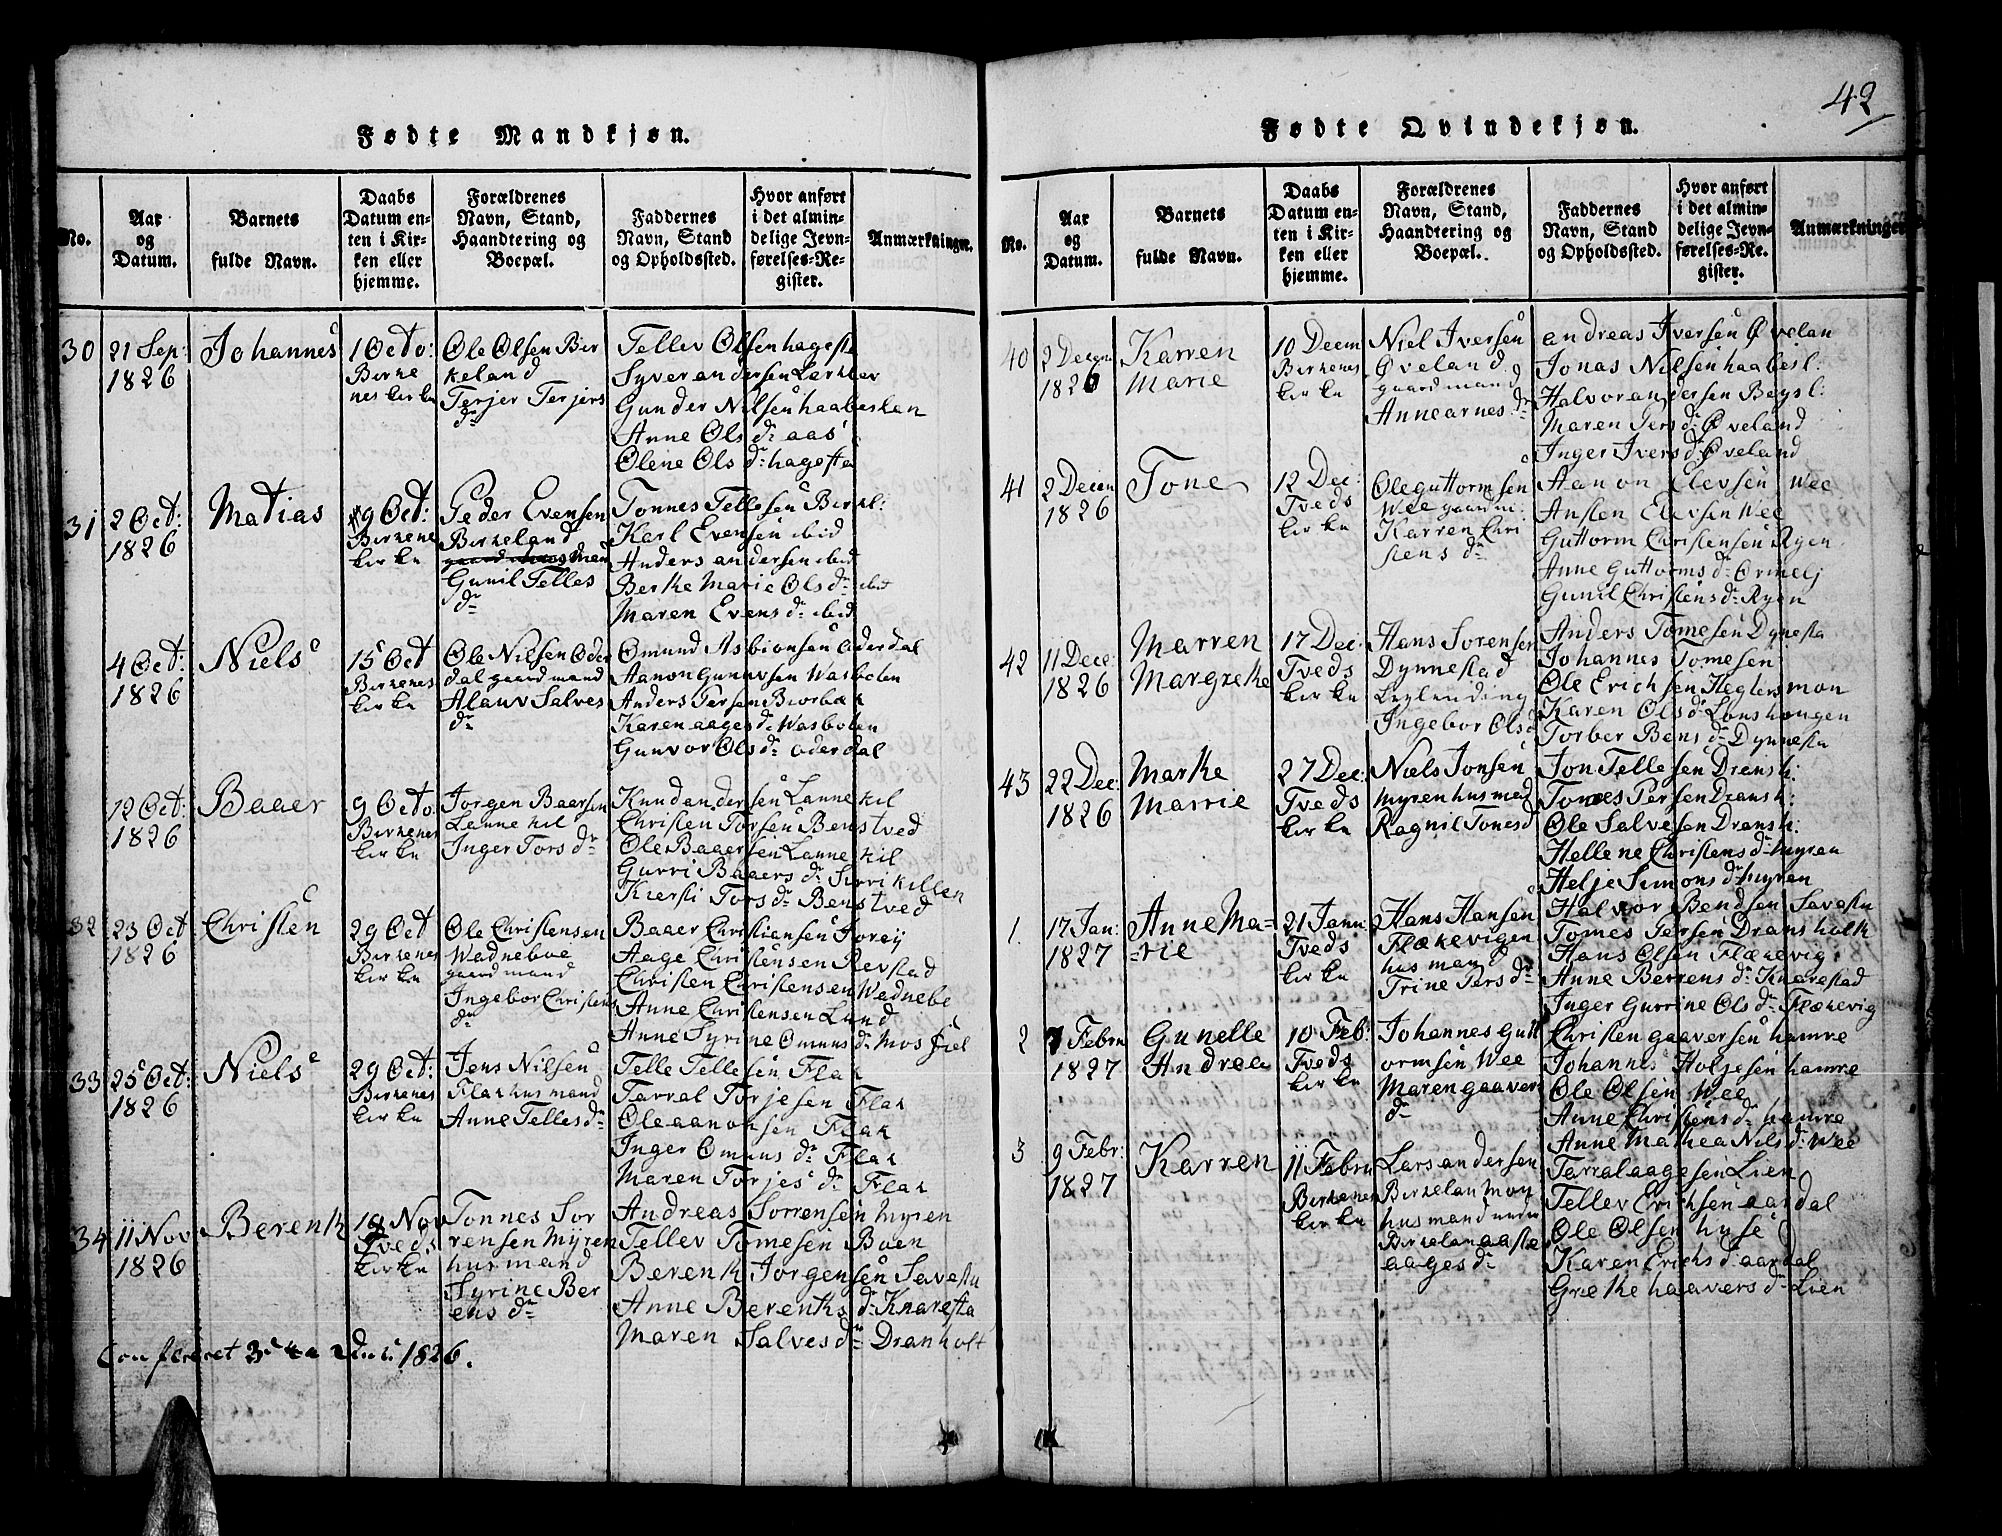 42
Fødte Mandkjøn.
No.
Aar
og
Datum.
Barnets
fulde Navn.
Daabs
Datum en-
ten i Kir-
ken eller
hjemme.
Forældrenes
Navn, Stand,
Haandtering og
Boepæl.
Faddernes
Navn, Stand
og Opholdssted.
Hvor anført
i det almin-
delige Jevn-
førelses-Re-
gister.
Anmærkninger.
30
21 Sep:
1826
Johannes
1 Octo:
Birke
nes kirke
Ole Olsen Bir
keland
Terjer Terjers
dr
Tellev Olsen hageste
Syver andersen Lerklev
Gunder Nilsen haabesken
Anne Ols dr aas
Olene Ols dr: hageste
31
2 Oct:
1826
Matias
9 Oct:
Birkene
kirke
Peder Evensen
Birkeland
Gunil Telles
dr
Tonnes Tellesen Birkl:
Karl Evensen ibid
Anders andersen ibid
Berthe Marie Ols dr ibid
Maren Evens dr ibid
4 Oct:
1826
Niels
15 Oct
Birkenes
kirke
Ole Nilsen Oder
dal gaardmand
Alauv Salves
dr
Omund Asbionsen Oderdal
Aanon Gunuvsen Wasboten
Anders Tersen Biorbak
Karen aages dr Wasboten
Gunvor Ols dr oderdal
12 Oct:
1826
Baaer
9 Octo
Birkenes
kirke
Jorgen Baarsen
Lanne kil
Inger Tors dr
Knud andersen Lanne kil
Christen Torsen Benstved
Ole Baaersen Lanne kil
Gurri Baaers dr Sirrikillen
Kiersti Tors dr Benstved
32
23 Oct
1826
Christen
29 Oct
Birkenes
kirke
Ole Christensen
Wadneboe
gaardmand
Ingebor Christens
dr
Baaer Christiansen
Aage Christensen Revstad
Christen Christensen Wadnebe
Anne Christensen Lund
Anne Syrine Omuns dr Mosfiel
33
25 Oct:
1826
Niels
29 Oct:
Birkenes
kirke
Jens Nilsen
Flak husmand
Anne Telles dr
Telle Tellesen Flak
Tarral Torjesen Flak
Ole aanonsen Flak
Inger Omuns dr Flak
Maren Torjes dr Flak
34
11 Nov
1826
Berent
19 Nov
Tveds
kirke
Tonnes Sor
rensen Myren
husmand
Syrine Ber
ens dr
Andreas Sorrensen Myren
Tellev Tomesen Boen
Berent Jorgensen Savestu
Anne Berenths dr Knaresta
Maren Salves dr Dranholt
1826.
Fødte Qvindekjøn.
No.
Aar
og
Datum.
Barnets
fulde Navn.
Daabs
Datum en-
ten i Kir-
ken eller
hjemme.
Forældrenes
Navn, Stand,
Haandtering og
Boepæl.
Faddernes
Navn, Stand
og Opholdssted.
Hvor anført
i det almin-
delige Jevn-
førelses-Re-
gister.
Anmærkninger
40
2 Decem
1826
Karren
Marie
10 Decem
Birkenes
kirke
Niel Iversen
Øveland
gaardmand
Anne arnes dr
andreas Iversen Øvelan
Jonas Nilsen haabesl:
Halvor andersen Bøgsl:
Maren Ters dr Øveland
Inger Ivers dr Øveland
41
2 Decem
1826
Tone
12 Dec:
Tveds
kirke
Ole guttormsen
Wee gaardm.
Karren Chri
stens dr
Aanon Elevsen Wee
Ansten Elevsen Wee
Guttorm Christensen Ryen
Anne Guttorms dr Ormelj
Gunil Christens dr Ryen
42
11 Dece:
1826
Marren
Margrethe
17 Dec:
Tveds
kirke
Hans Sorensen
Dynnestad
leylending
Ingebor Ols dr
Anders Tomesen Dynesta
Johannes Tomesen
Ole Erichsen Heglers mon
Karen Ols dr Lonshougen
Torber Bens dr Dynnesta
43
22 Dec:
1826
Marthe
Marrie
27 Dec:
Tveds
kirke
Niels Jonsen
Myren husmed
Ragnil Tones d
Jon Tellesen Dransh:
Tomes Persen Dransh:
Ole Salvesen Dransh:
Hellene Christens dr Myren
Helje Simons dr Myren
1.
17 Jan:
1827
Anne Ma=
=rie
21 Janu
Tveds
kirke
Hans Hansen
Flækevigen
husmand
Trine Ters dr
Halvor Bendsen Savestu
Tomes Persen Dransholt
Hans Olsen Flækevig
Anne Berrens dr Knarestad
Inger Gurrine Ols dr Flækevig
2
7 Febru
1827
Gunelle
Andrea
10 Feb:
Tveds
kirke
Johannes Gutt
ormsen Wee
Maren gaavers
dr
Christen gaaversen hamre
Johannes Holjesen hamre
Ole Olsen Wee
Anne Christens dr hamre
Anne Mathea Nils dr Wee
3
9 Febr:
1827
Karren
11 Febru
Birkenes
kirke
Lars andersen
Birkelan moy
husmand under
Birkelan aaste
aages dr
Tarral aagesen Lien
Tellev Erichsen aardal
Ole Olsen hyse
Karen Erichs d aardal
Grethe haavers dr Lien